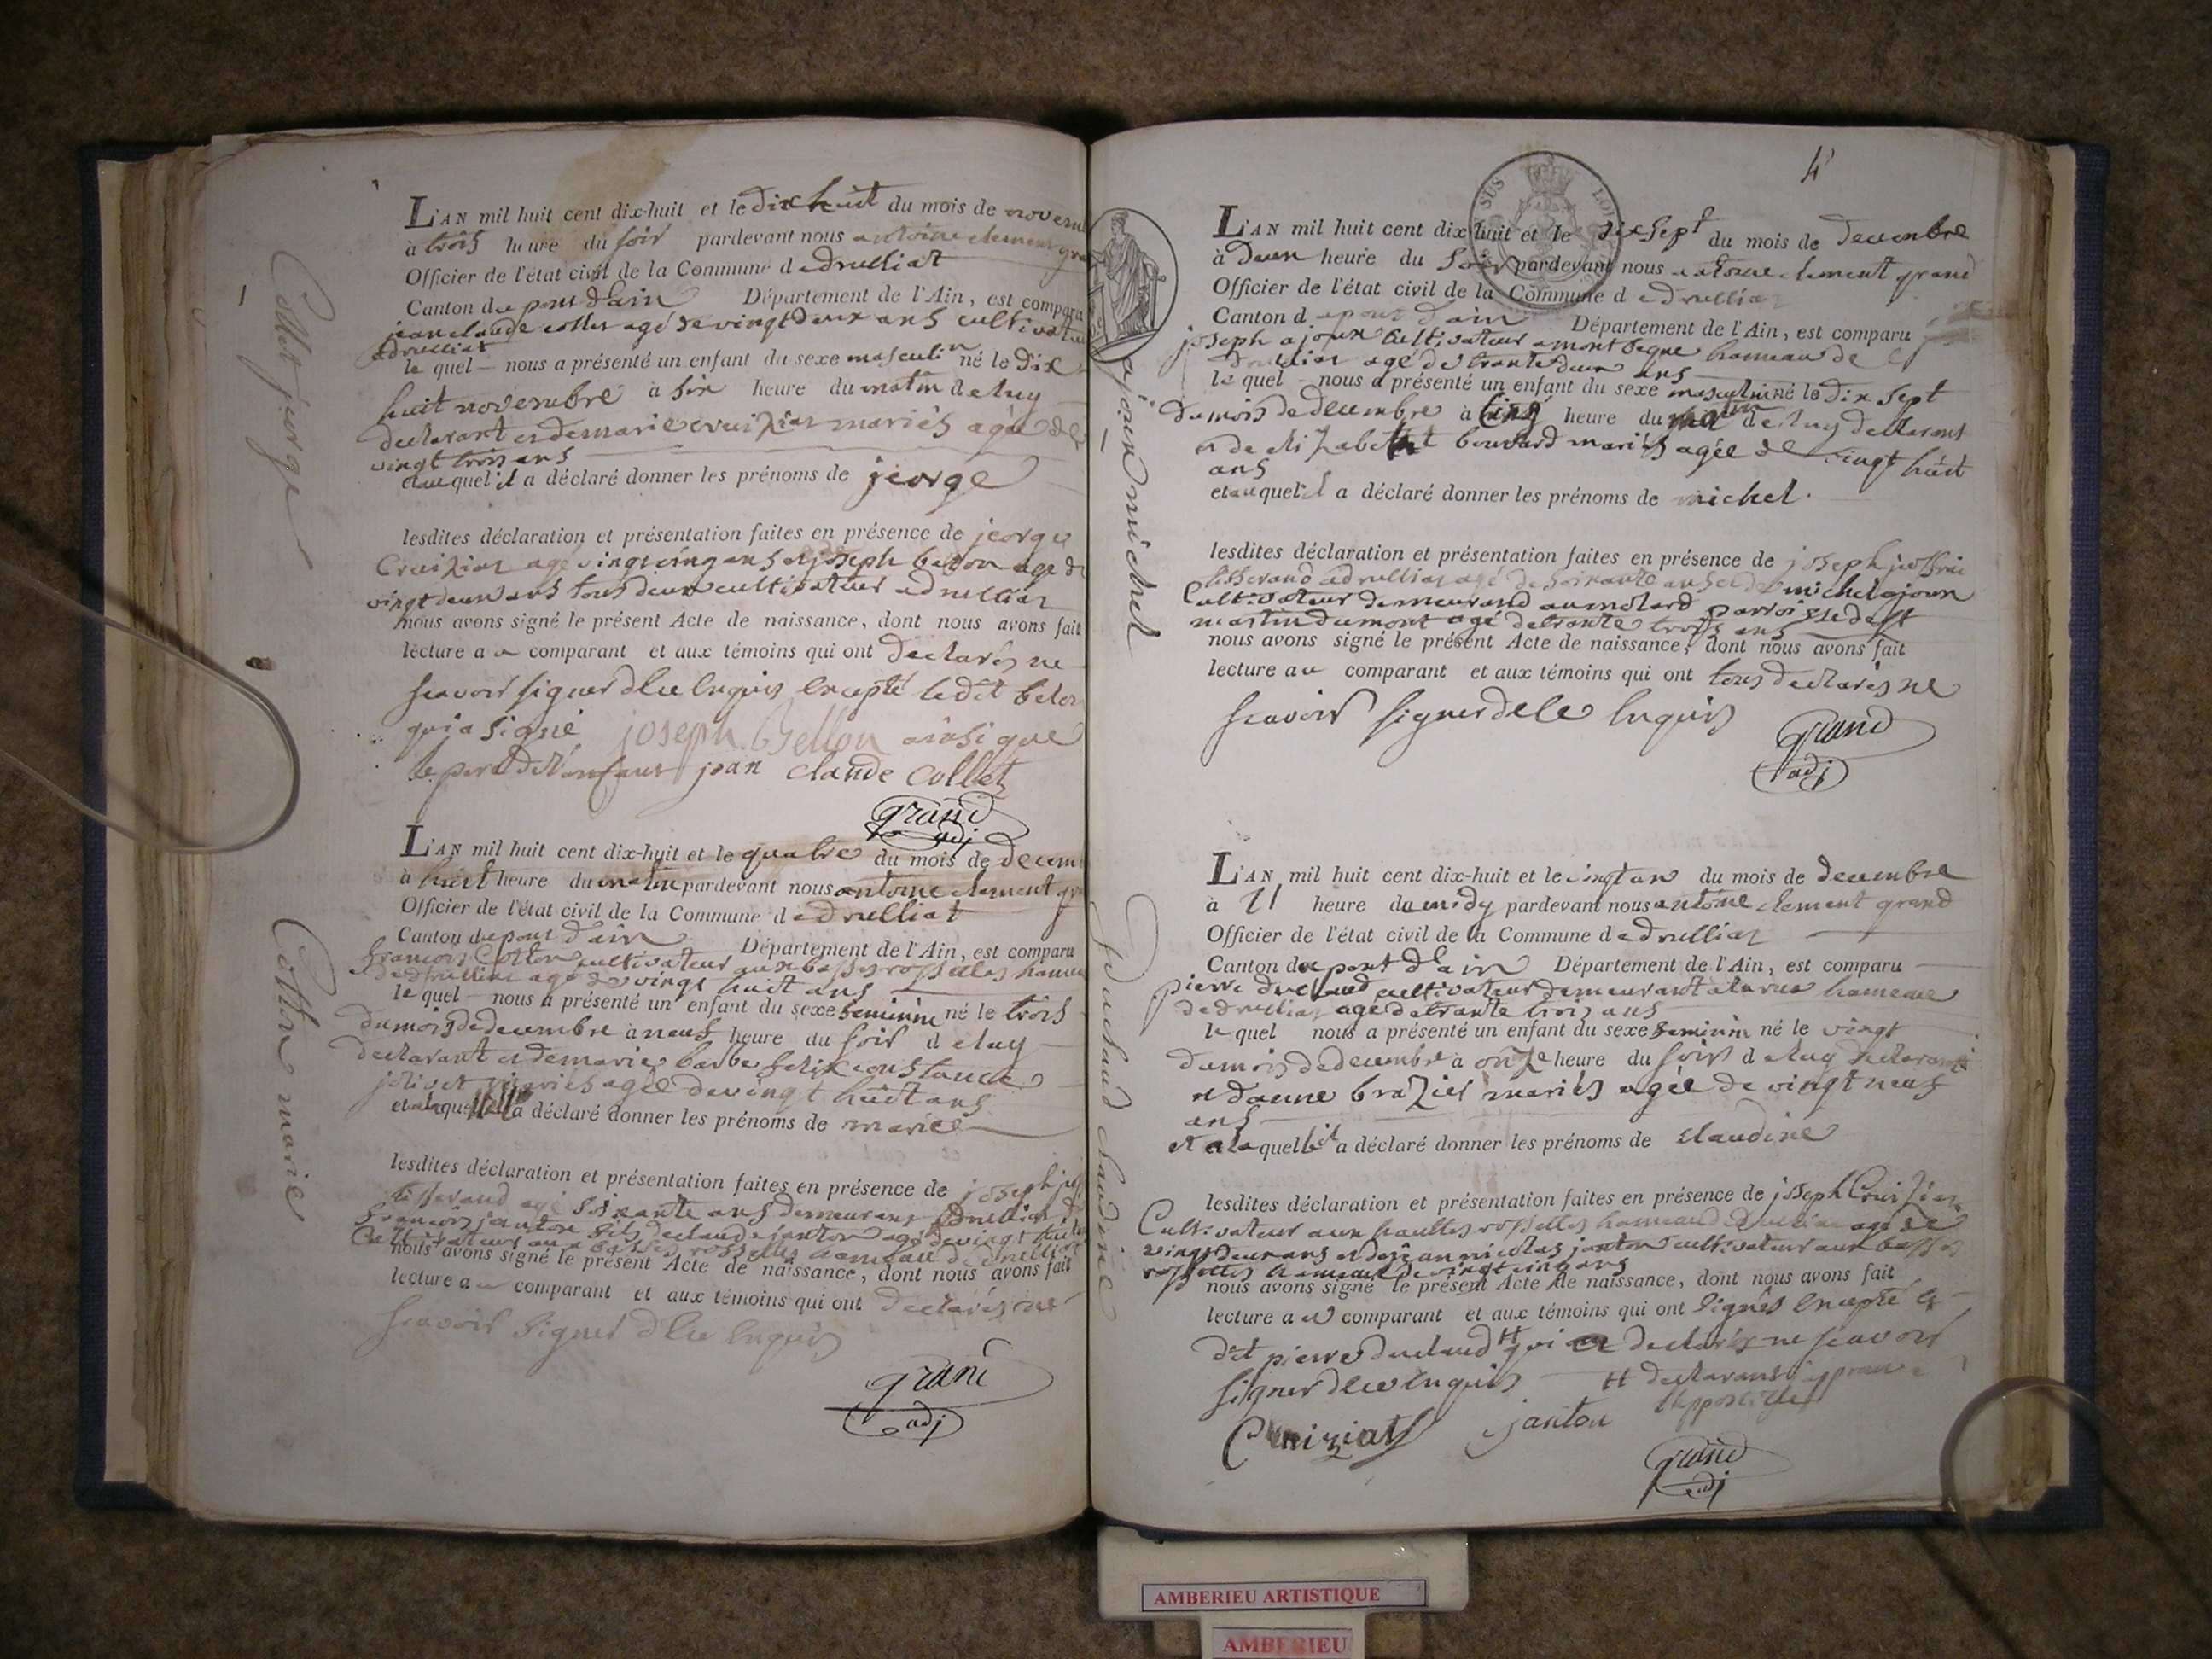 L'AN mil huit cent dix-huit et le dix huit du mois de novem
à trois heure du soir pardevant nous antoine clement gra
Officier de l'état civil de la Commune d edrulliat
Canton du pont d'ain Département de l'Ain, est comparu
jean claude collet agé de vingt deux ans cultivateu
adrulliat
le quel nous a présenté un enfant du sexe masculin né le dix
huit novembre à six heure du matin de luy
declarant et de marie cruiziat mariés agée de
vingt trois ans
et auquel il a déclaré donner les prénoms de jeorge
lesdites déclaration et présentation faites en présence de jeorge
Cruiziat agé vingt cinq ans et joseph belon agé de
vingt deux ans tous deux cultivateur adrulliat
nous avons signé le présent Acte de naissance, dont nous avons fait
lecture au comparant et aux témoins qui ont declarés ne
scavoir signer de ce enquis excepté ledit belon
qui a signé joseph Bellon ainsi que
le pere de l'enfant jean claude collet
grand
adj
Collet jeorge
L'AN mil huit cent dix-huit et le quatre du mois de decem
à huit heure du matin pardevant nous antoine clement gra
Officier de l'état civil de la Commune d edrulliat
Canton du pont d'ain Département de l'Ain, est comparu
francois Cotton cultivateur aux basses rossettes hameau
de drulliat agé de vingt huit ans
le quel nous a présenté un enfant du sexe feminin né le trois
du mois de decembre à neuf heure du soir de luy
declarant et de marie barbe felix constance
jolivet mariés agée de vingt huit ans
a déclaré donner les prénoms de marie
lesdites déclaration et présentation faites en présence de joseph
tisserand agé soixante ans demeurant adrulliat
francois janton fils de claude janton agé de vingt huit
Cultivateur aux basses rossettes hameau de drulliat
nous avons signé le présent Acte de naissance, dont nous avons fait
lecture au comparant et aux témoins qui ont declarés ne
scavoir signer de ce enquis
grand
adj
Cotton marie
4
SUS
L'AN mil huit cent dix-huit et le dix sept du mois de decembre
à deux heure du soir pardevant nous antoine clement grand
Officier de l'état civil de la Commune d edrulliat
Canton du pont d'ain Département de l'Ain, est comparu
joseph ajoux cultivateur a mont hameau de
drulliat agé de trante deux ans
le quel nous a présenté un enfant du sexe masculin né le dix sept
du mois de decembre à cinq heure du matin de luy declarant
et de elizabeth bouvard mariés agée de vingt huit
ans
et auquel il a déclaré donner les prénoms de michel.
lesdites déclaration et présentation faites en présence de joseph
tisserand adrulliat agé de soixante ans et de michel ajoux
Cultivateur demeurand au molard parroisse de st
martin du mont agé de trante trois ans
nous avons signé le présent Acte de naissance, dont nous avons fait
lecture au comparant et aux témoins qui ont tous declarés ne
scavoir signer de ce enquis
grand
adj
ajoux michel
L'AN mil huit cent dix-huit et le vingt un du mois de decembre
à heure du midy pardevant nous antoine clement grand
Officier de l'état civil de la Commune d edrulliat
Canton du pont d'ain Département de l'Ain, est comparu
pierre duclaud cultivateur demeurant a la rue hameau
de drulliat agé de trante trois ans
le quel nous a présenté un enfant du sexe feminin né le vingt
du mois de decembre à onze heure du soir de luy declarant
et d'anne brazier mariés agée de vingt neuf
ans
et a la quelle il a déclaré donner les prénoms de claudine
lesdites déclaration et présentation faites en présence de joseph Cruiziat
Cultivateur aux haultes rossettes hameaud drulliat agé de
vingt deux ans et de jean nicolas janton cultivateur aux basses
rossettes hameau de vingt cinq ans
nous avons signé le présent Acte de naissance, dont nous avons fait
lecture au comparant et aux témoins qui ont signés excepté le
dit pierre duclaud # qui a declarés ne scavoir
signer de ce enquis # declarant approuvé
l'appostille
Cruiziat janton
grand
adj
duclaud claudine
AMBERIEU ARTISTIQUE
AMBERIEU